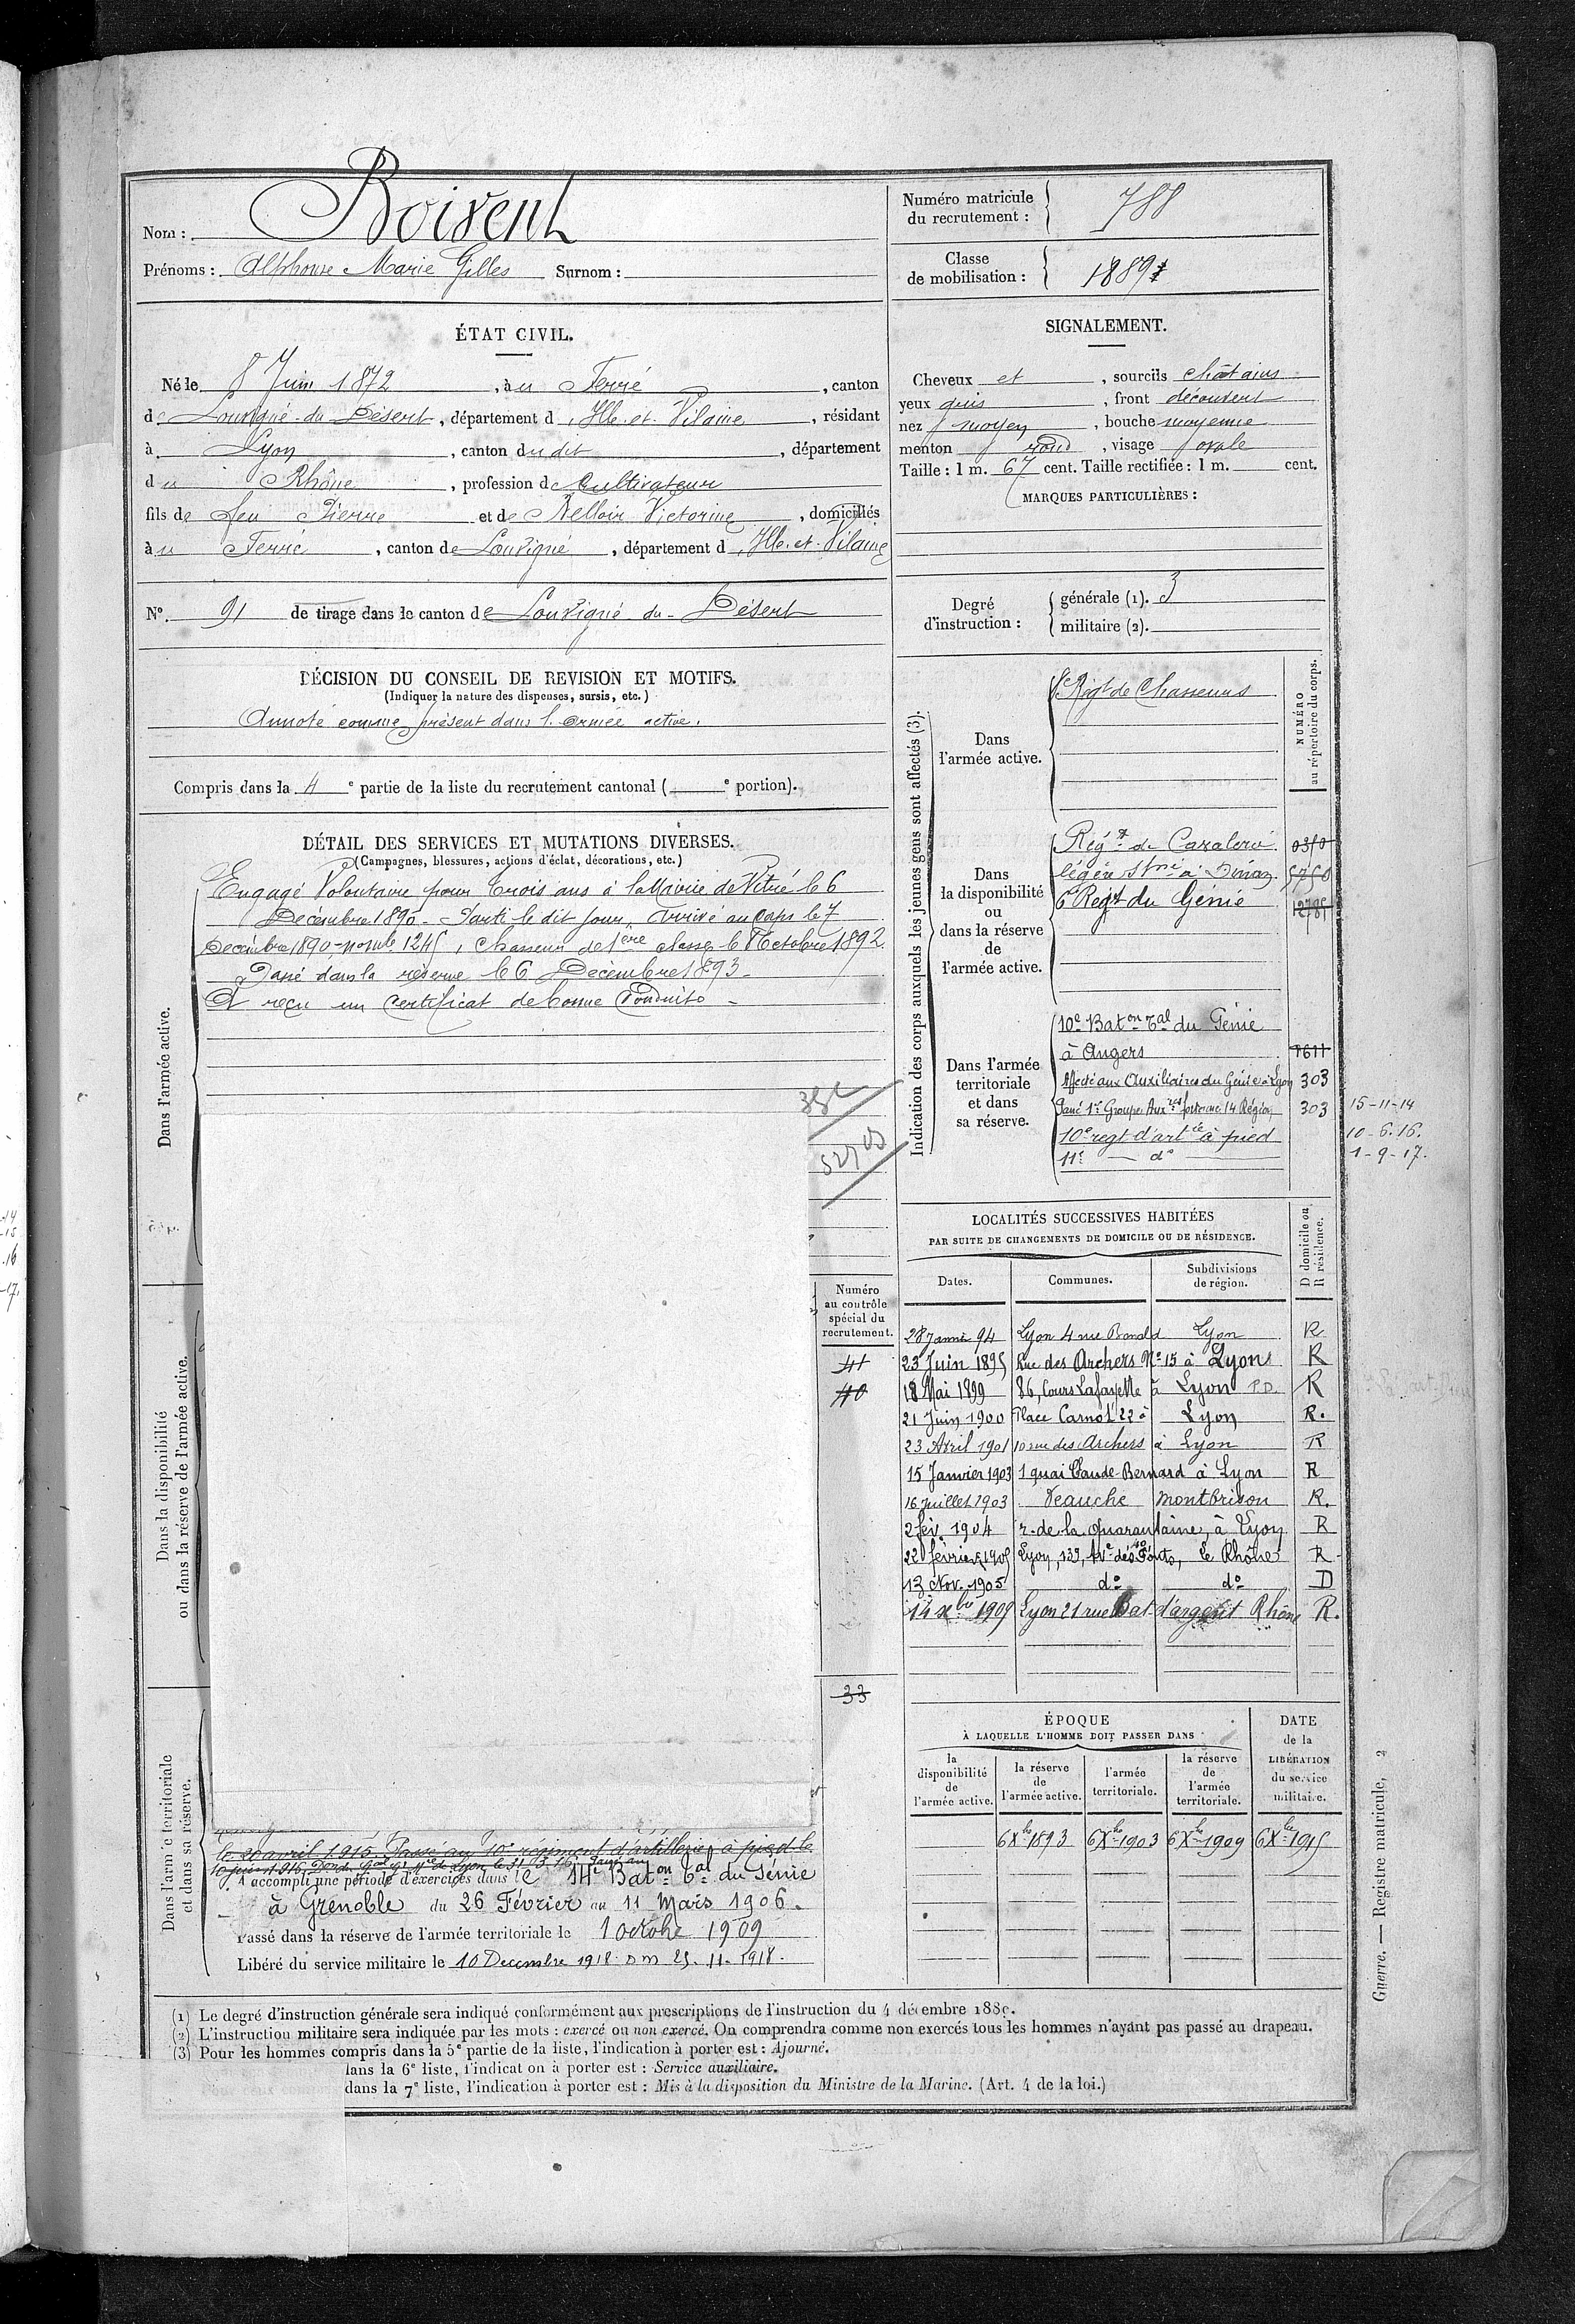 Nom : Boivent
Prénoms : Alphonse Marie Gilles Surnom :
Numéro matricule du recrutement : 788
Classe de mobilisation : 1889
ÉTAT CIVIL.
Né le 8 Juin 1872, à u Ferré, canton
de Louvigné-du-Désert, département d'Ille-et-Vilaine, résidant
à Lyon, canton dudit, département
du Rhône, profession de Cultivateur
fils de feu Pierre et de Nelloir Victorine, domiciliés
à u Ferré, canton de Louvigné, département d'Ille-et-Vilaine
N° 91 de tirage dans le canton de Louvigné-du-Désert
SIGNALEMENT.
Cheveux et, sourcils châtains
yeux gris, front découvert
nez moyen, bouche moyenne
menton rond, visage ovale
Taille : 1 m. 67 cent. Taille rectifiée : 1 m. cent.
MARQUES PARTICULIÈRES :
Degré d'instruction : générale (1). 3
militaire (2).
DÉCISION DU CONSEIL DE REVISION ET MOTIFS.
(Indiquer la nature des dispenses, sursis, etc.)
Annoté comme présent dans l'armée active.
Compris dans la 4e partie de la liste du recrutement cantonal ( e portion).
DÉTAIL DES SERVICES ET MUTATIONS DIVERSES.
(Campagnes, blessures, actions d'éclat, décorations, etc.)
Dans l'armée active.
Engagé Volontaire pour trois ans à la Mairie de Vitré le 6
Décembre 1890. Parti le dit jour, arrivé au corps le 7
Décembre 1890, no mle 1245, Chasseur de 1ère classe le 8 Octobre 1892.
Passé dans la réserve le 6 Décembre 1893.
A reçu un certificat de bonne Conduite.
Dans la disponibilité
ou dans la réserve de l'armée active.
Numéro
au contrôle
spécial du
recrutement.
41
40
33
Dans l'armée territoriale
et dans sa réserve.
le 20 avril 1916. Passé au 10e régiment d'artillerie à pied le
10 juin 1916
A accompli une période d'exercices dans le 14e Baton Tal du Génie
à Grenoble du 26 Février au 11 Mars 1906.
Passé dans la réserve de l'armée territoriale le 1 octobre 1909
Libéré du service militaire le 10 Decembre 1918 DM 25.11.1918.
Indication des corps auxquels les jeunes gens sont affectés (3).
NUMÉRO
au répertoire du corps.
Dans
l'armée active.
Régt de Chasseurs
Dans
la disponibilité
ou
dans la réserve
de
l'armée active.
Régt de Cavalerie 0350
légère à Dinan 5750
6e Régt du Génie 12785
Dans l'armée
territoriale
et dans
sa réserve.
10e Baton Tal du Génie
à Angers 1611
Affecté aux Auxiliaires du Génie à Lyon 303
Passé 1er Groupe Auxres 14 Région 303 15-11-14
10e regt d'artie à pied 10-6.16.
11e do 1-9-17.
LOCALITÉS SUCCESSIVES HABITÉES
PAR SUITE DE CHANGEMENTS DE DOMICILE OU DE RÉSIDENCE.
Dates. Communes. Subdivisions de région. D domicile ou R résidence.
28 janvr 94 Lyon 4 rue Bonald Lyon R
23 Juin 1895 Rue des Archers No 15 à Lyon R
18 Mai 1899 86, Cours Lafayette à Lyon P.D. R
21 Juin 1900 Place Carnot 22 à Lyon R.
23 Avril 1901 10 rue des Archers à Lyon R
15 Janvier 1903 1 quai Claude-Bernard à Lyon R
16 juillet 1903 Veauche Montbrison R.
2 fév. 1904 r. de la Quarantaine, à Lyon R
22 février 1905 Lyon, 139, Ave des Ponts, le Rhône R
13 Nov. 1905 do do D
14 xbre 1909 Lyon 21 rue Bat d'argent Rhône R.
ÉPOQUE
À LAQUELLE L'HOMME DOIT PASSER DANS
DATE
de la
LIBÉRATION
du service
militaire.
la disponibilité de l'armée active.
la réserve de l'armée active.
l'armée territoriale.
la réserve de l'armée territoriale.
6 Xbre 1893 6 Xbre 1903 6 Xbre 1909 6 Xbre 1915
(1) Le degré d'instruction générale sera indiqué conformément aux prescriptions de l'instruction du 4 décembre 1889.
(2) L'instruction militaire sera indiquée par les mots : exercé ou non exercé. On comprendra comme non exercés tous les hommes n'ayant pas passé au drapeau.
(3) Pour les hommes compris dans la 5e partie de la liste, l'indication à porter est : Ajourné.
dans la 6e liste, l'indication à porter est : Service auxiliaire.
dans la 7e liste, l'indication à porter est : Mis à la disposition du Ministre de la Marine. (Art. 4 de la loi.)
Guerre. — Registre matricule, 2